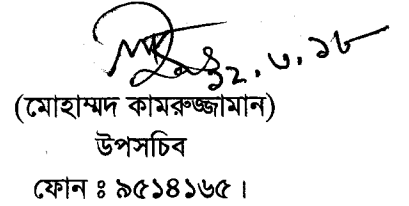 ১২.৩.১৮
(মোহাম্মদ কামরুজ্জামান)
উপসচিব
ফোন ঃ ৯৫১৪১৬৫।